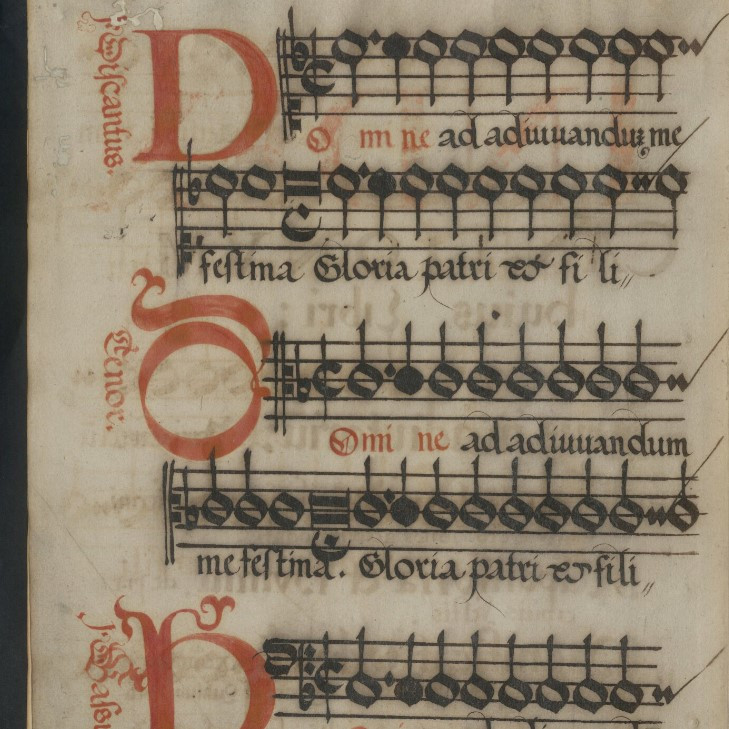 Discantus.
Domine ad adiuuanduʒ me
festina Gloria patri et fili„
Tenor.
Domine ad adiuuandum
me festina. Gloria patri et fili„